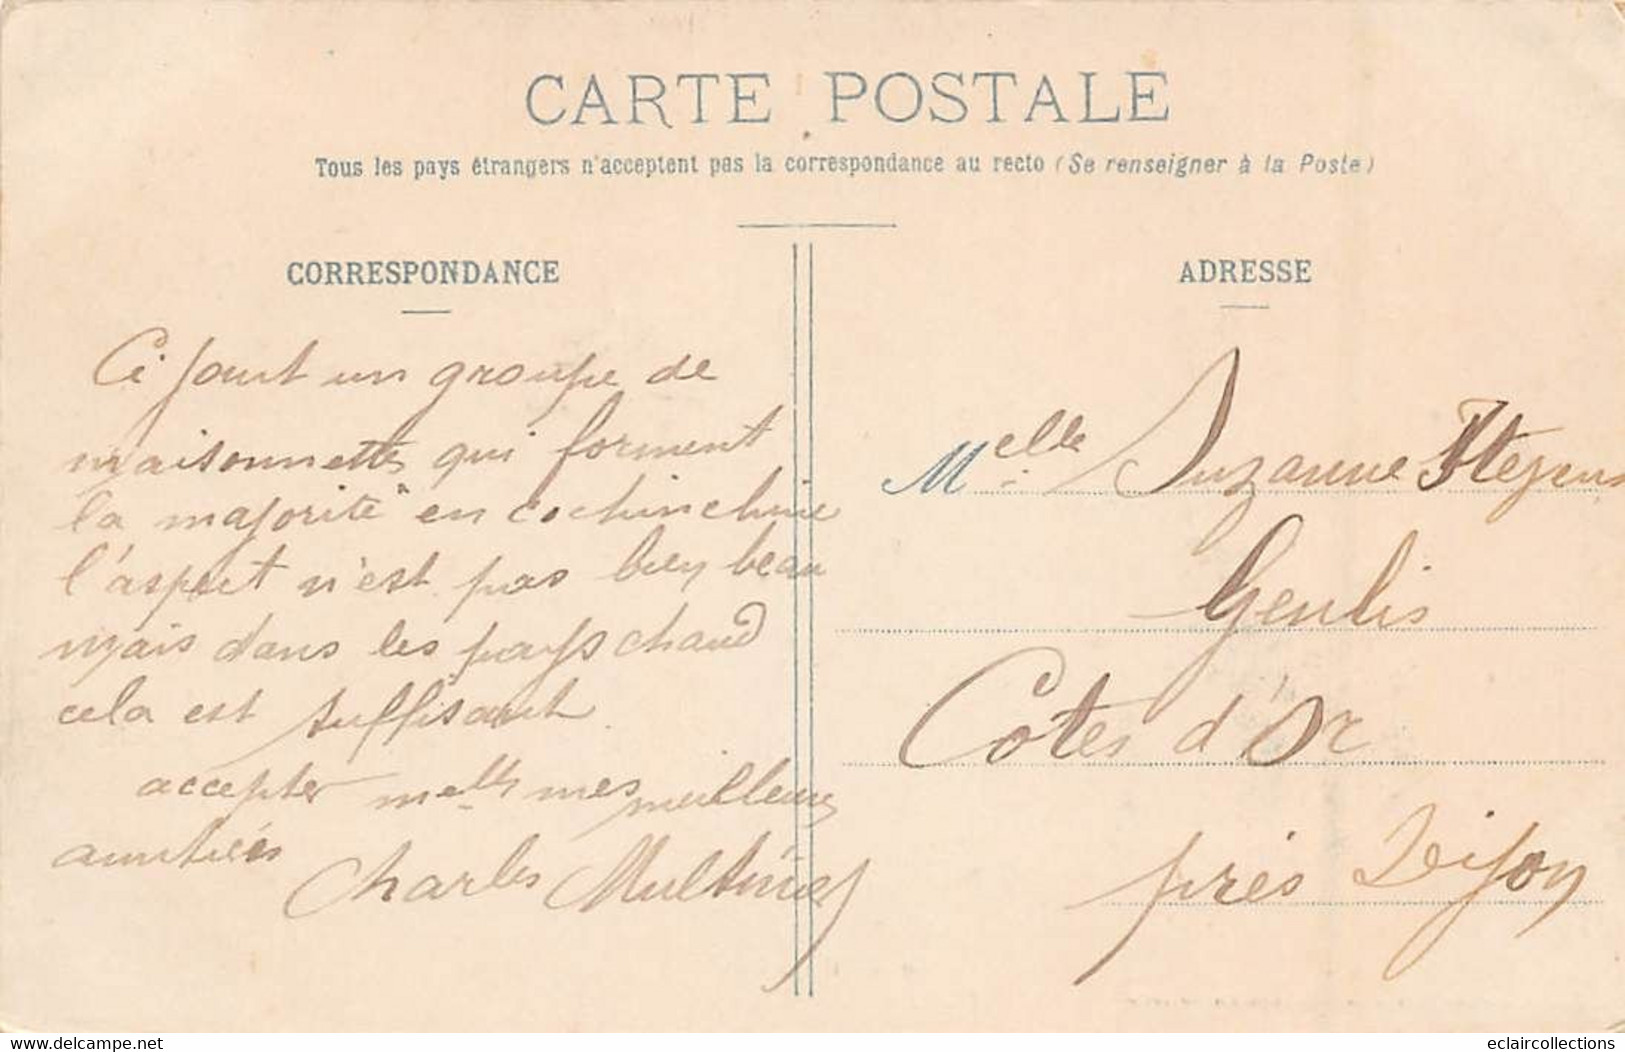 CARTE POSTALE
Tous les pays étrangers n'acceptent pas la correspondance au recto (Se renseigner à la Poste)
CORRESPONDANCE
Ci joint un groupe de
maisonnettes qui forment
la majorité en cochinchine
l'aspect n'est pas bien beau
mais dans les pays chaud
cela est suffisant
accepter melle mes meilleures
amitiées
Charles
ADRESSE
Melle Suzanne
Genlis
Cotes d'Or
près Dijon
www.delcampe.net
eclaircollections